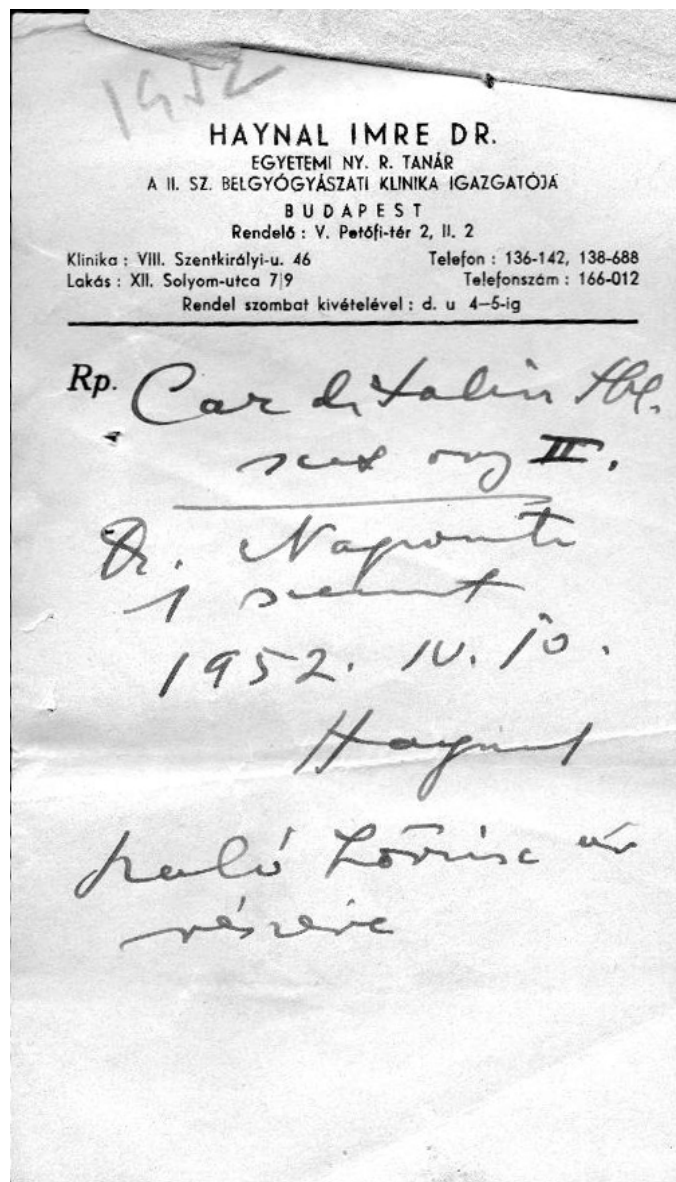 1952
HAYNAL IMRE DR.
EGYETEMI NY. R. TANÁR
A II. SZ. BELGYÓGYÁSZATI KLINIKA IGAZGATÓJA
BUDAPEST
Rendelő : V. Petőfi-tér 2, II. 2
Klinika : VIII. Szentkirályi-u. 46 Telefon : 136-142, 138-688
Lakás : XII. Solyom-utca 7|9 Telefonszám : 166-012
Rendel szombat kivételével : d. u 4—5-ig
Rp. Carditalin tbl.
scat orig II.
Naponta
1 szemet
1952. IV. 10.
Haynal
Lőrinc úr
részére